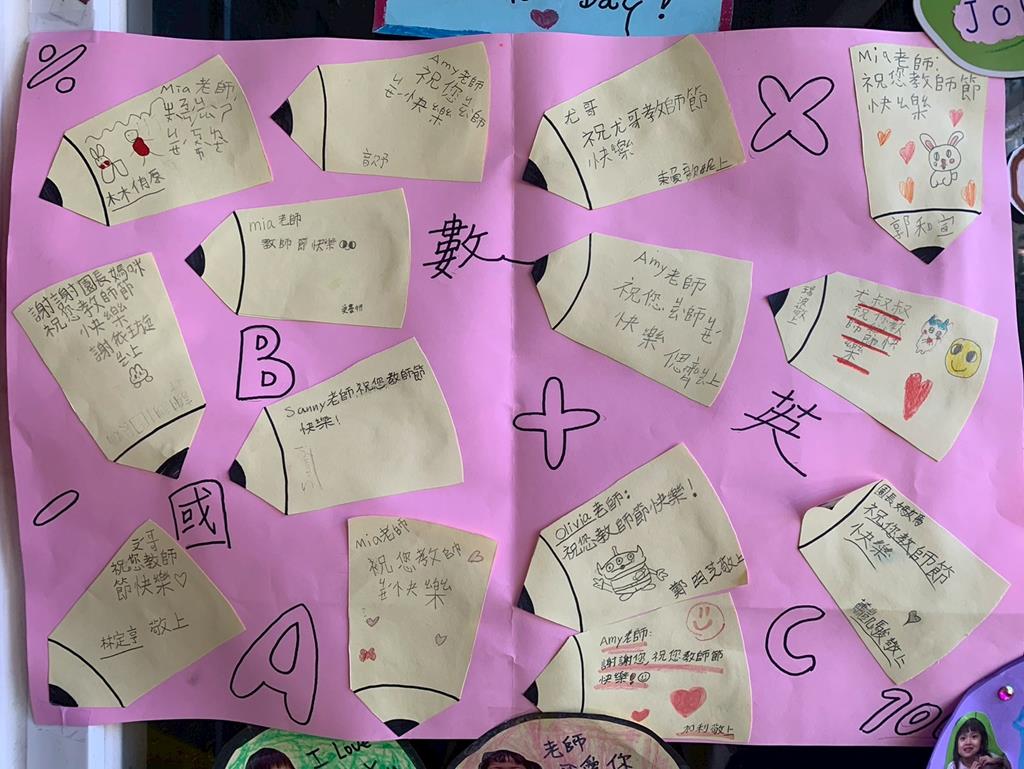 Day!
JO
%
Mia老師
木木俏麼
Amy老師
祝您
ㄐㄝˊ快樂
尤哥
祝尤哥教師節
快樂
Mia老師:
祝您教師節
快樂
郭和宣
mia老師
教師節快樂
數
Amy老師
祝您
快樂
謝謝園長媽咪
祝您教師節
快樂
B
Sanny老師,祝您教師節
快樂!
+
英
尤叔叔
祝你教
師節快
樂
-
國
文哥
祝您教師
節快樂♡
林定亨 敬上
A
Mia老師
祝您教師
ㄐㄝˊ快樂
Olivia老師:
祝您教師節快樂!
鄭明芫敬上
Amy老師:
謝謝您,祝您教師節
快樂!
加利敬上
園長媽媽
祝您教師節
快樂
凱駿敬上
C
10
I Love
老師
你